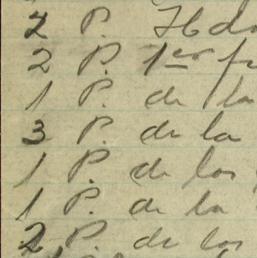 2 P.
2 P. 1er
1 P. de la
3 P. de la
1 P. de los
1 P. de la
2 P. de los